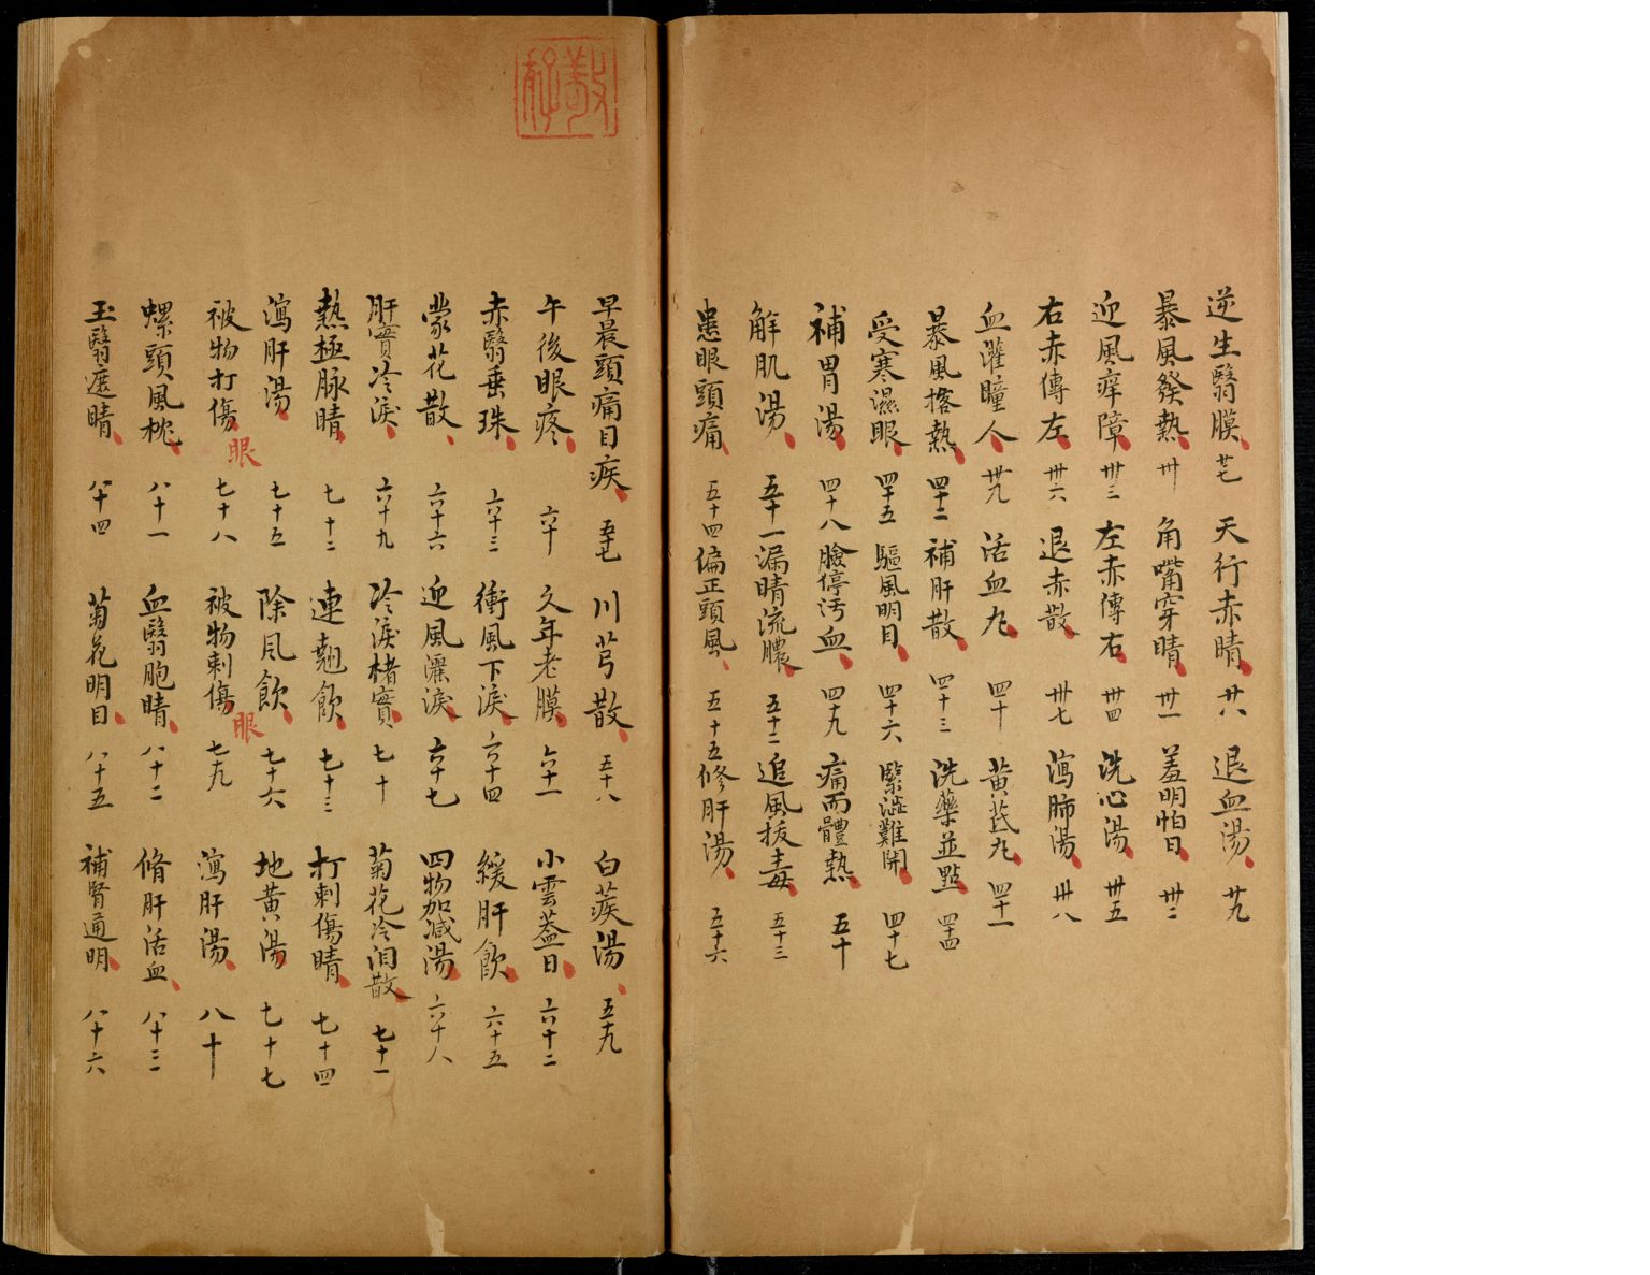 逆生翳膜 廿七 天行赤睛 廿八 退血湯 廿九
暴風發熱 卅 角嘴穿睛 卅一 羞明怕日 卅二
迎風痒障 卅三 左赤傳右 卅四 洗心湯 卅五
右赤傳左 卅六 退赤散 卅七 瀉肺湯 卅八
血灌瞳人 卅九 活血丸 四十 黄芪丸 四十一
暴風撘熱 四十二 補肝散 四十三 洗藥並點 四十四
受寒濕眼 四十五 驅風明目 四十六 緊澁難開 四十七
補胃湯 四十八 臉停汚血 四十九 痛而體熱 五十
解肌湯 五十一 漏睛流膿 五十二 追風拔毒 五十三
患眼頭痛 五十四 偏正頭風 五十五 修肝湯 五十六
早晨頭痛目疾 五十七 川芎散 五十八 白蒺湯 五十九
午後眼疼 六十 久年老膜 六十一 小雲蓋日 六十二
赤翳垂珠 六十三 衝風下淚 六十四 緩肝飲 六十五
蒙花散 六十六 迎風灑淚 六十七 四物加減湯 六十八
肝實冷淚 六十九 冷淚楮實 七十 菊花冷泪散 七十一
熱極脉睛 七十二 連翹飲 七十三 打刺傷睛 七十四
瀉肝湯 七十五 除風飲 七十六 地黄湯 七十七
被物打傷眼 七十八 被物刺傷眼 七十九 瀉肝湯 八十
螺頭風枕 八十一 血翳胞睛 八十二 脩肝活血 八十三
玉翳遮睛 八十四 菊花明目 八十五 補腎通明 八十六